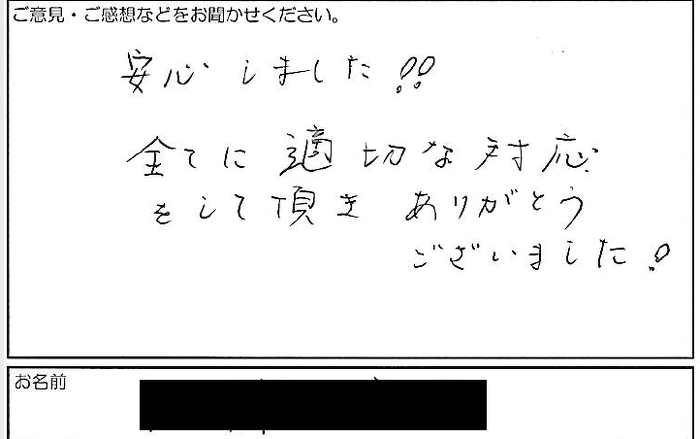 ご意見・ご感想などをお聞かせください。
安心しました!!
全てに適切な対応
をして頂き ありがとう
ございました!
お名前